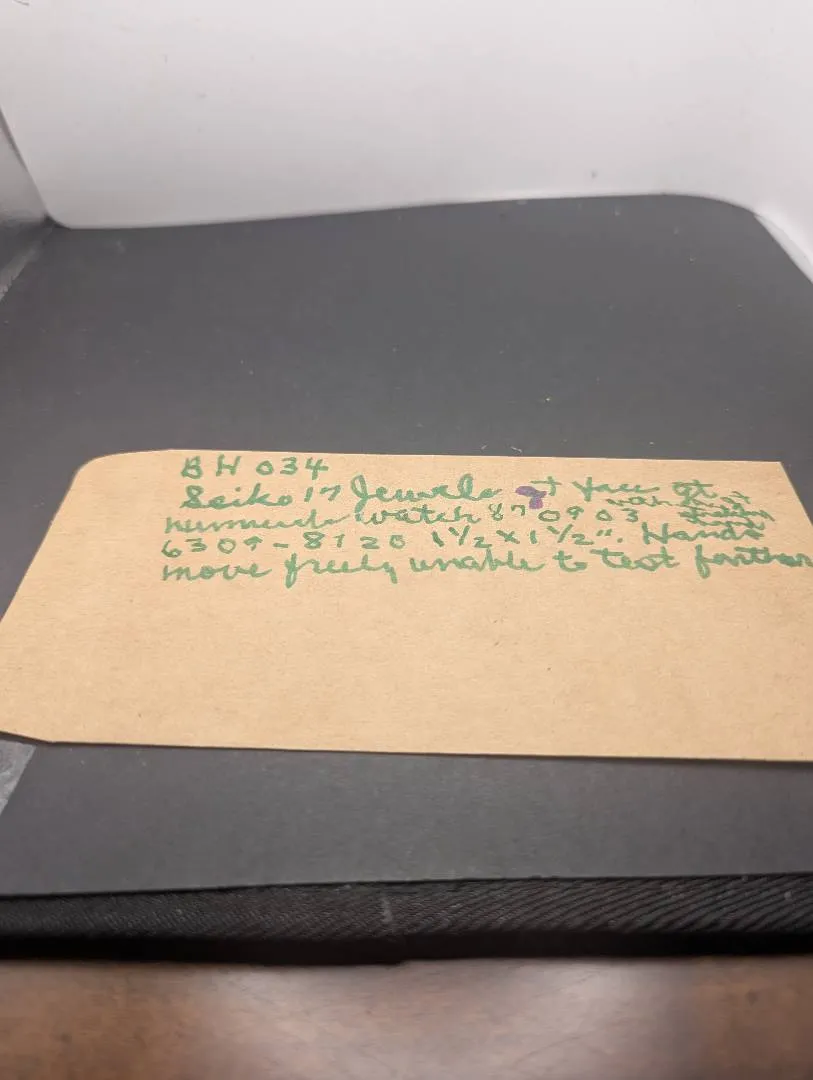 BH 034
Seiko 17 Jewels
watch 870903
6309-8120 1 1/2 x 1 1/2". Hands
move freely unable to test further